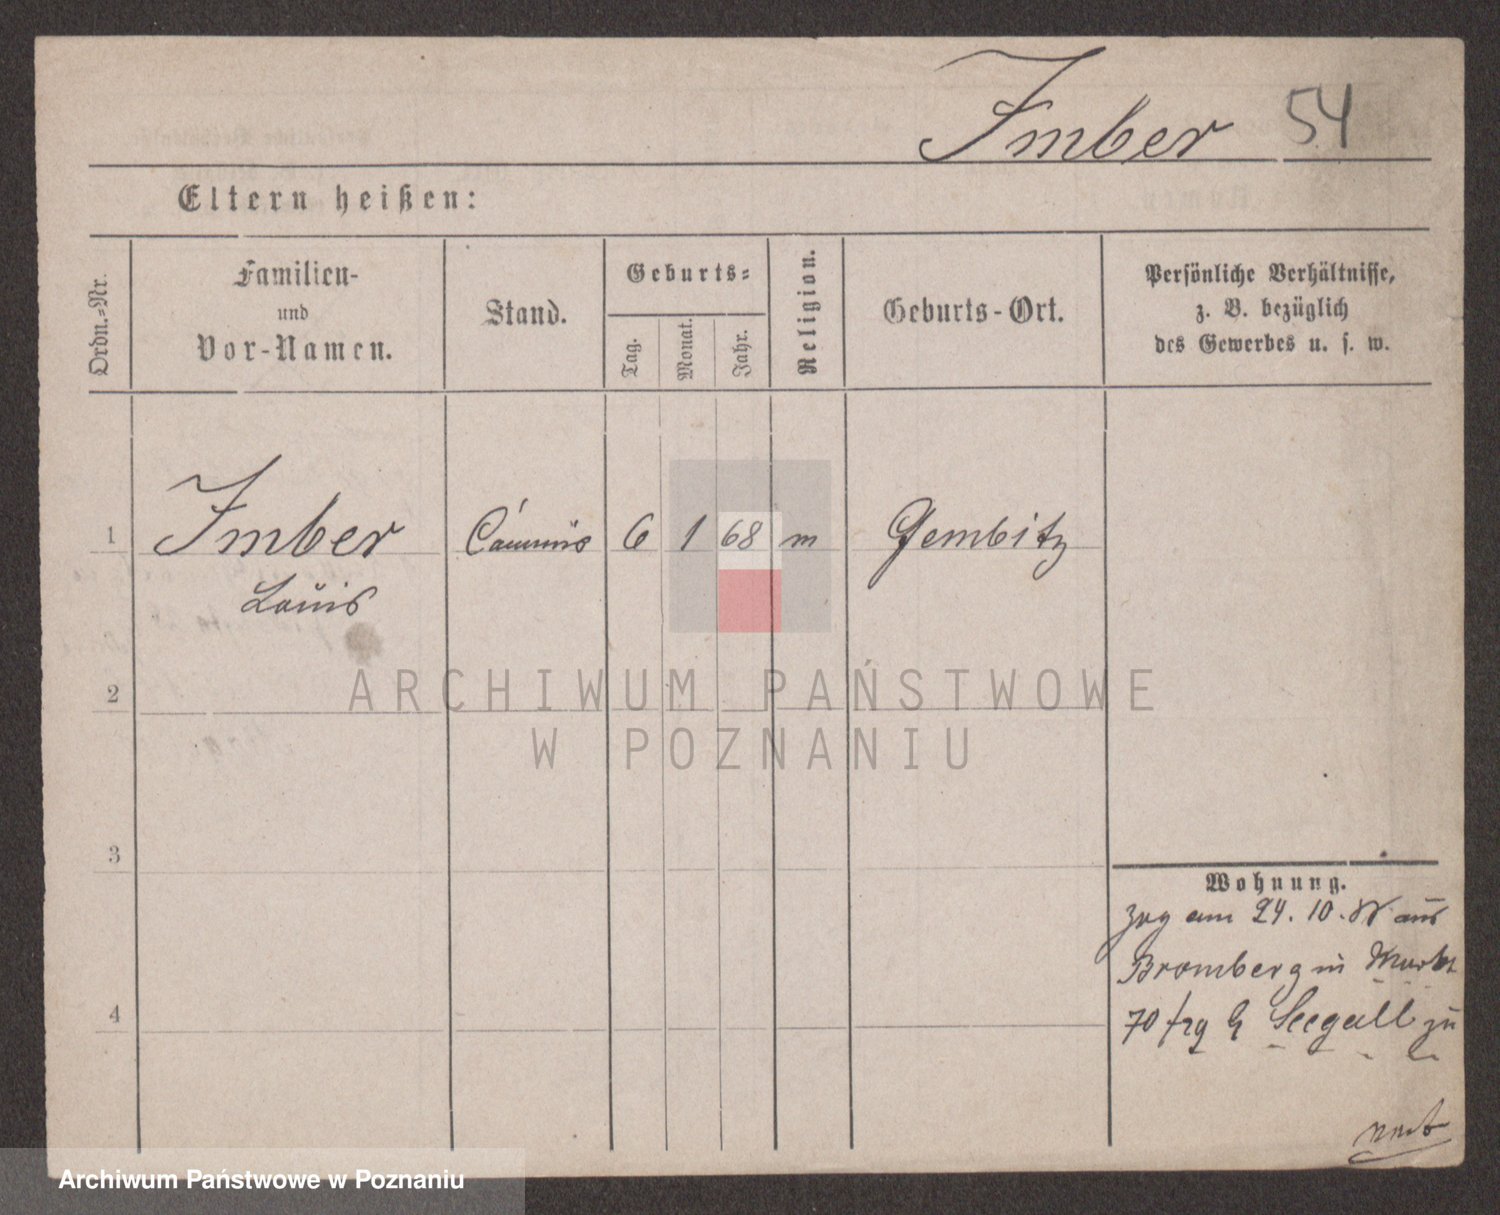 Imber 54
Eltern heißen:
Ordn.-Nr.
Familien-
und
Vor-Namen.
Stand.
Geburts-
Tag.
Monat.
Jahr.
Religion.
Geburts-Ort.
Persönliche Verhältnisse,
z. B. bezüglich
des Gewerbes u. s. w.
1 Imber 6 1 68 m Gembitz
Louis
2
3
4
Wohnung.
zog am 24. 10. aus
Bromberg in Markt
70 Seegall zu
ARCHIWUM PAŃSTWOWE
W POZNANIU
Archiwum Państwowe w Poznaniu